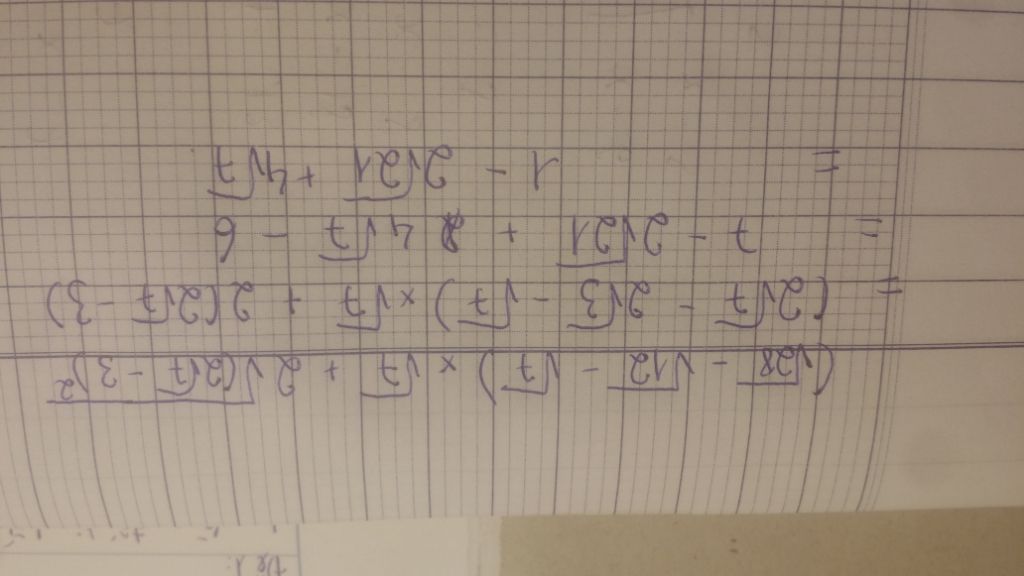 (√28 - √12 - √7) × √7 + 2√(2√7 - 3)²
= (2√7 - 2√3 - √7) × √7 + 2(2√7 - 3)
= 7 - 2√21 + 4√7 - 6
= 1 - 2√21 + 4√7